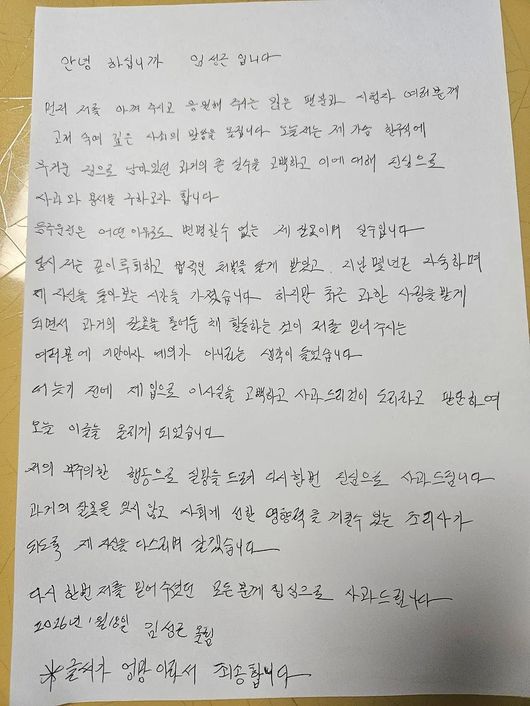 안녕 하십니까 임성근 입니다
먼저 저를 아껴 주시고 응원해 주시는 많은 팬분과 시청자 여러분께
고개 숙여 깊은 사죄의 말씀을 올립니다 오늘 저는 제 가슴 한구석에
무거운 짐으로 남아있던 과거의 큰 실수을 고백하고 이에 대해 진심으로
사과와 용서를 구하고자 합니다
음주운전은 어떤 이유로도 변명할수 없는 제 잘못이며 실수입니다
당시 저는 깊이 후회하고 법적인 처벌을 달게 받았고, 지난 몇년간 자숙하며
제 자신을 돌아 보는 시간을 가졌습니다 하지만 최근 과한 사랑을 받게
되면서 과거의 잘못을 묻어둔 채 활동하는 것이 저를 믿어 주시는
여러분에 기만이자 예의가 아니라는 생각이 들었습니다
더 늦기 전에 제 입으로 이사실을 고백하고 사과드리것이 도리라고 판단하여
오늘 이글을 올리게 되었습니다
저의 부주의한 행동으로 실망을 드려 다시한번 진심으로 사과드립니다
과거의 잘못을 잊지 않고 사회에 선한 영향력을 끼칠수 있는 조리사가
되도록 제 자신을 다스리며 살겠습니다
다시 한번 저를 믿어 주셨던 모든 분께 진심으로 사과드립니다
2026년 1월 18일 임성근 올림
※글씨가 엉망이라서 죄송합니다